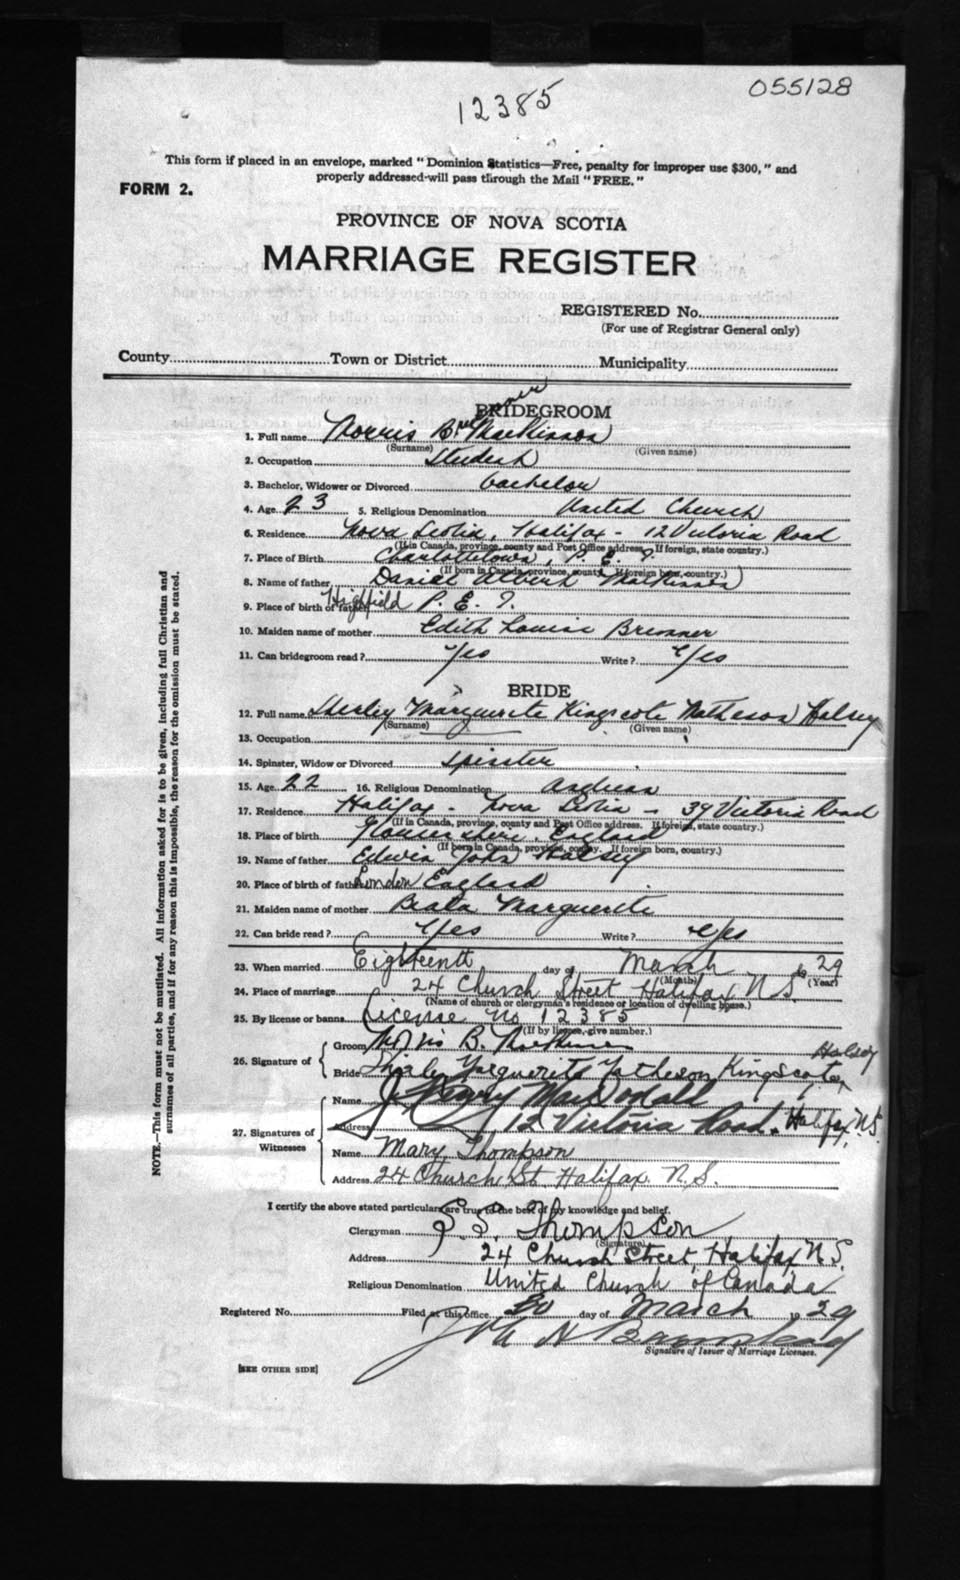 055128
12385
This form if placed in an envelope, marked "Dominion Statistics—Free, penalty for improper use $300," and
properly addressed-will pass through the Mail "FREE."
FORM 2.
PROVINCE OF NOVA SCOTIA
MARRIAGE REGISTER
REGISTERED No.
(For use of Registrar General only)
County Town or District Municipality
BRIDEGROOM
1. Full name Norris B MacKinnon
(Surname) (Given name)
2. Occupation Student
3. Bachelor, Widower or Divorced bachelor
4. Age 23 5. Religious Denomination United Church
6. Residence Nova Scotia, Halifax - 12 Victoria Road
(If in Canada, province, county and Post Office address. If foreign, state country.)
7. Place of Birth Charlottetown, P. E. I.
(If born in Canada, province, county. If foreign born, country.)
8. Name of father Daniel Albert MacKinnon
9. Place of birth of father Highfield P. E. I.
10. Maiden name of mother Edith Louise
11. Can bridegroom read? Yes Write? Yes
BRIDE
12. Full name Shirley Marguerite Kingscote Matheson Halsey
(Surname) (Given name)
13. Occupation
14. Spinster, Widow or Divorced spinster
15. Age 22 16. Religious Denomination
17. Residence Halifax - Nova Scotia - 39 Victoria Road
(If in Canada, province, county and Post Office address. If foreign, state country.)
18. Place of birth Gloucestershire, England
(If born in Canada, province, county. If foreign born, country.)
19. Name of father Edwin John Halsey
20. Place of birth of father London England
21. Maiden name of mother Beata Marguerite
22. Can bride read? Yes Write? Yes
23. When married Eighteenth day of March 29
(Month) (Year)
24. Place of marriage 24 Church Street Halifax N.S.
(Name of church or clergyman's residence or location of dwelling house.)
25. By license or banns License No 12385
(If by license, give number.)
26. Signature of Groom Norris B. MacKinnon
Bride Shirley Marguerite Matheson Kingscote Halsey
27. Signatures of Witnesses
Name J. Henry MacDonald
Address 12 Victoria Road, Halifax N.S.
Name Mary Thompson
Address 24 Church St. Halifax N.S.
I certify the above stated particulars are true to the best of my knowledge and belief.
Clergyman Thompson
(Signature)
Address 24 Church Street, Halifax N.S.
Religious Denomination United Church of Canada
Registered No. Filed at this office 20 day of March 1929
Signature of Issuer of Marriage Licenses.
[SEE OTHER SIDE]
NOTE.—This form must not be mutilated. All information asked for is to be given, including full Christian and
surnames of all parties, and if for any reason this is impossible, the reason for the omission must be stated.